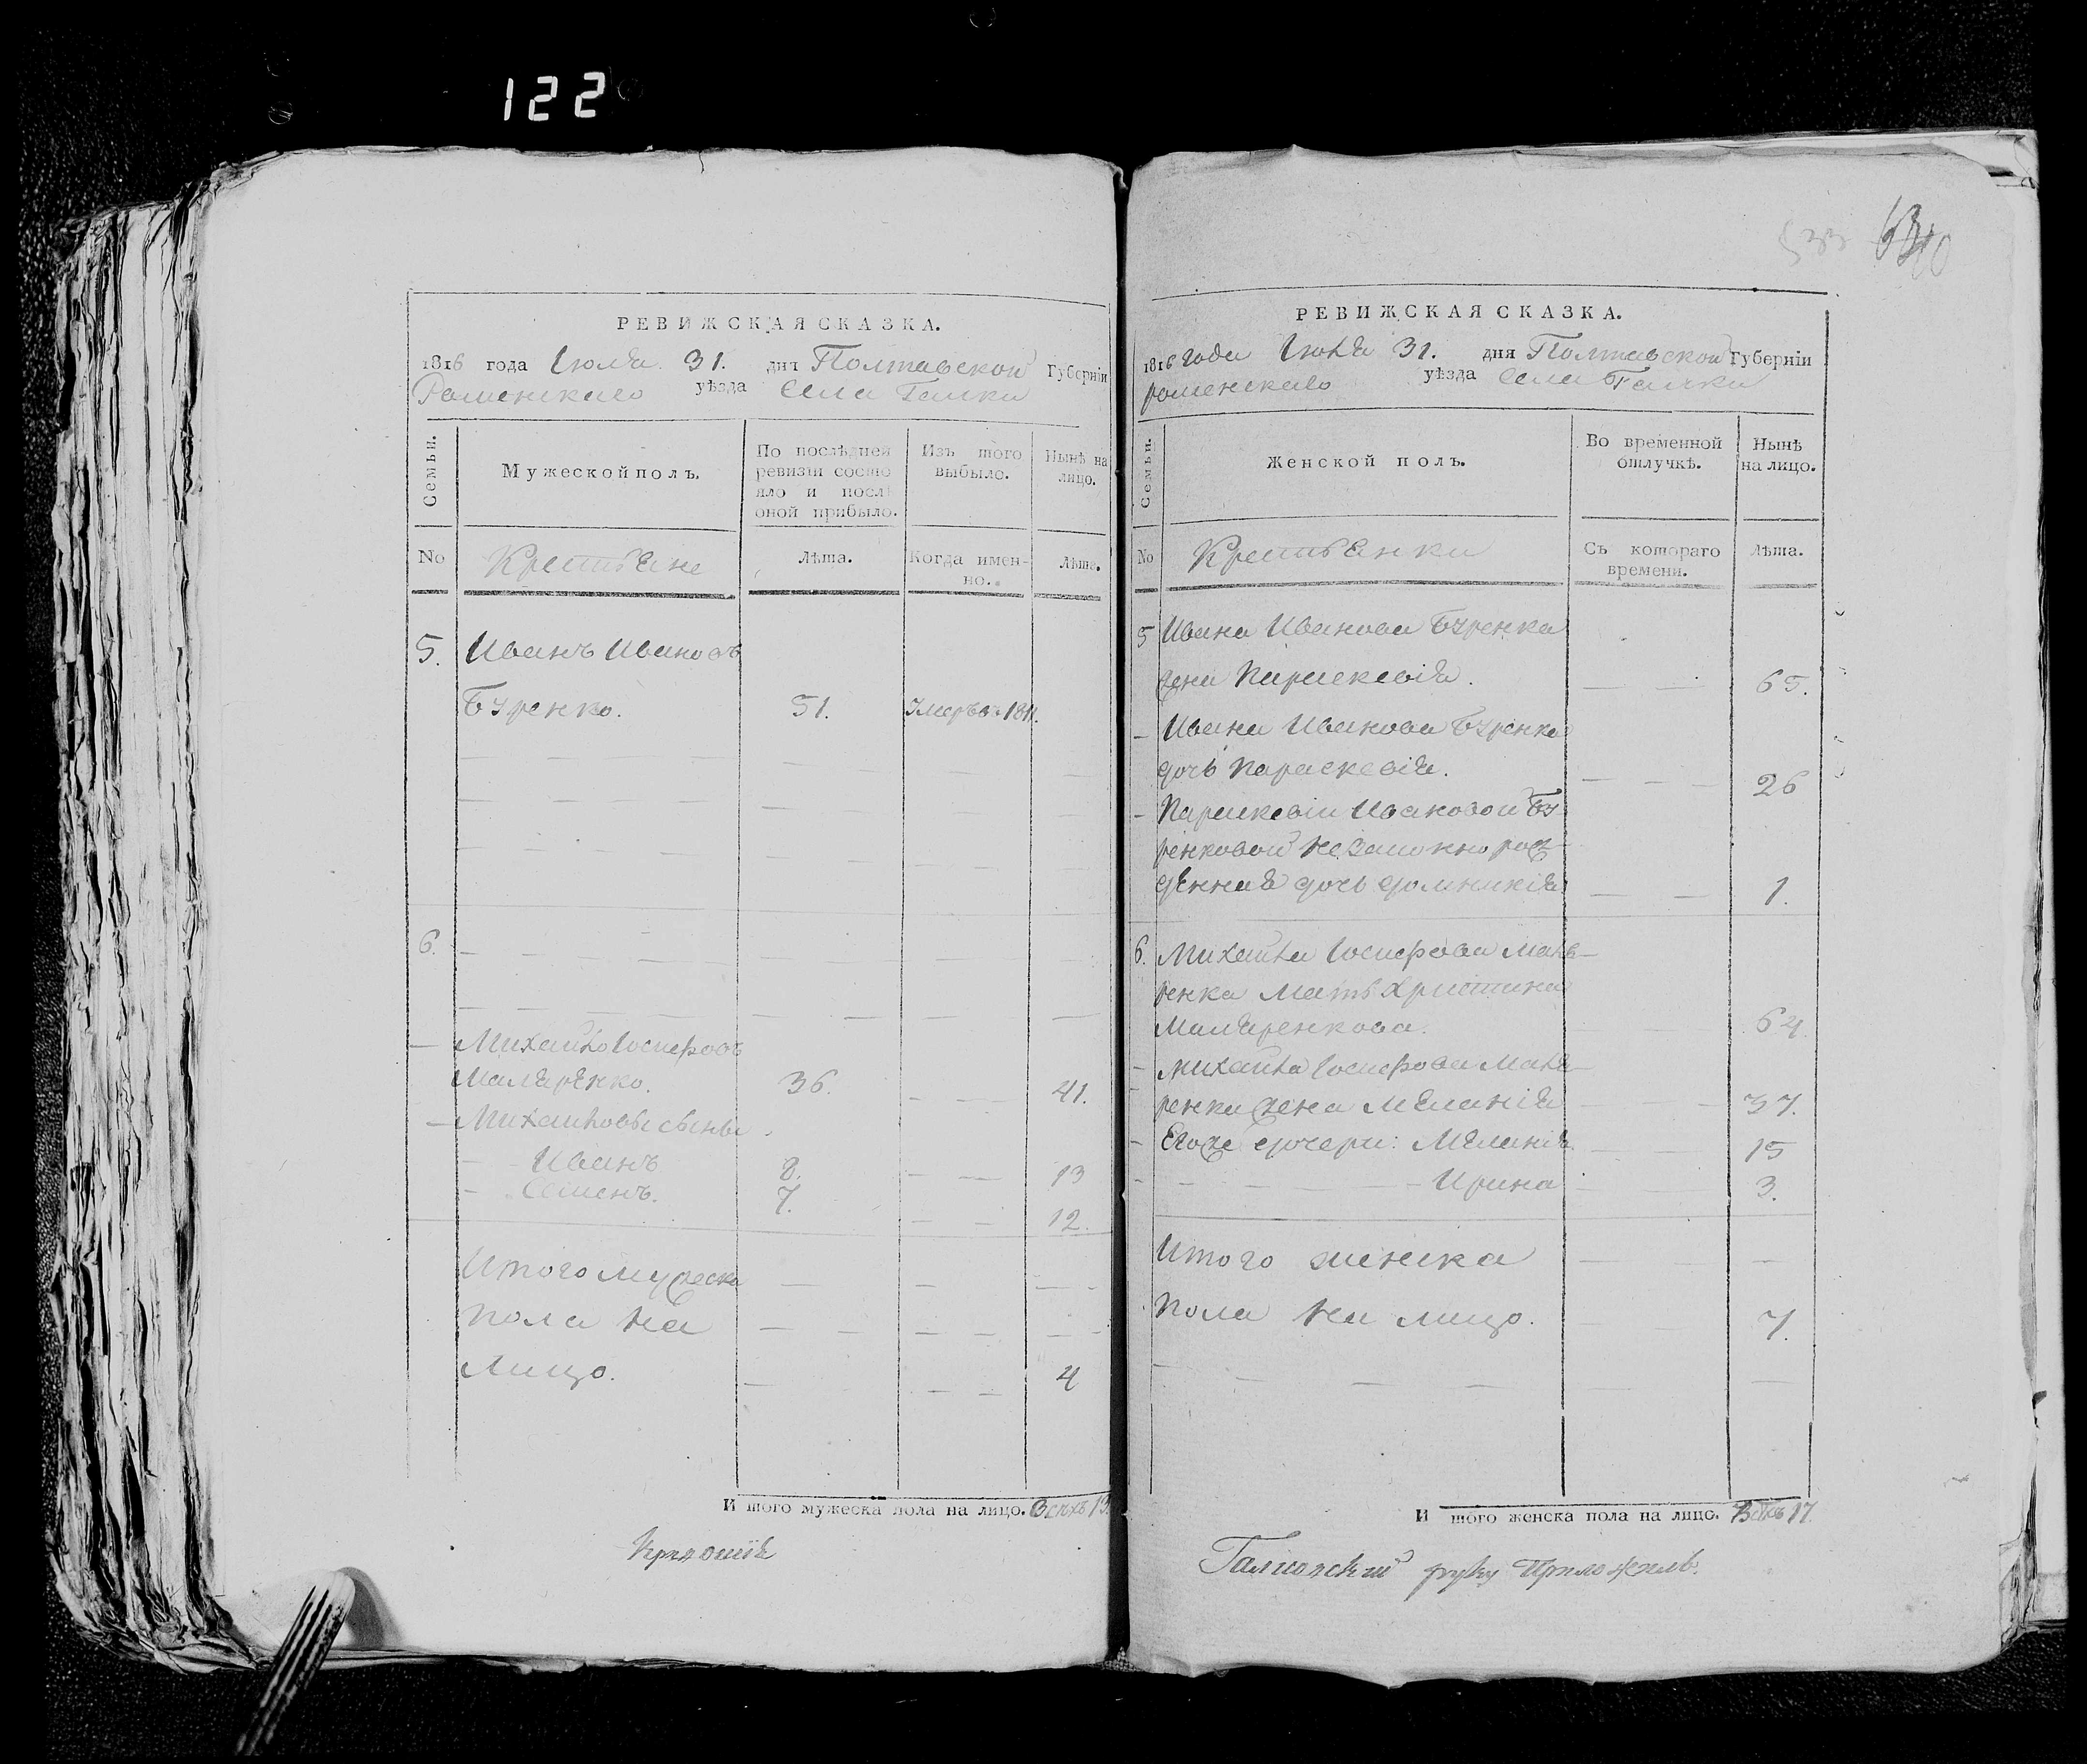 122
РЕВИЖСКАЯ СКАЗКА.
1816 года Іюля 31. дня Полтавской Губерніи
Роменскаго уѣзда Села Галки
Семьи.
Мужеской полъ.
По послѣдней ревизіи состояло и послѣ оной прибыло.
Изъ того выбыло.
Нынѣ на лицо.
No
Крестьяне
Лѣта.
Когда именно.
Лѣта.
5. Иванъ Ивановъ
Буренко. 51. Умеръ въ 1811.
6.
Михайло Іосифовъ
Маляренко. 36. 41.
Михайловы сыны
Иванъ 8. 13
Семенъ. 7. 12.
Итого мужеска
пола на
лицо. 4
И того мужеска пола на лицо. Всѣхъ 13.
РЕВИЖСКАЯ СКАЗКА.
1816 года Іюля 31. дня Полтавской Губерніи
роменскаго уѣзда села Галки
Семьи.
Женской полъ.
Во временной отлучкѣ.
Нынѣ на лицо.
No
Крестьянки
Съ котораго времени.
Лѣта.
5 Ивана Иванова Буренка
жена Параскевія. 65.
Ивана Иванова Буренка
дочь Параскевія. 26
Параскевіи Ивановой Бу-
ренковой незаконно рож-
денная дочь Домникія 1.
6. Михайла Іосифова Маля-
ренка мать Христина
Маляренкова. 64
Михайла Іосифова Маля-
ренка жена Меланія 37.
Егоже дочери: Меланія 15
Ирина 3.
Итого женска
пола на лицо. 7.
И того женска пола на лицо. Всѣхъ 17.
руку Приложилъ.